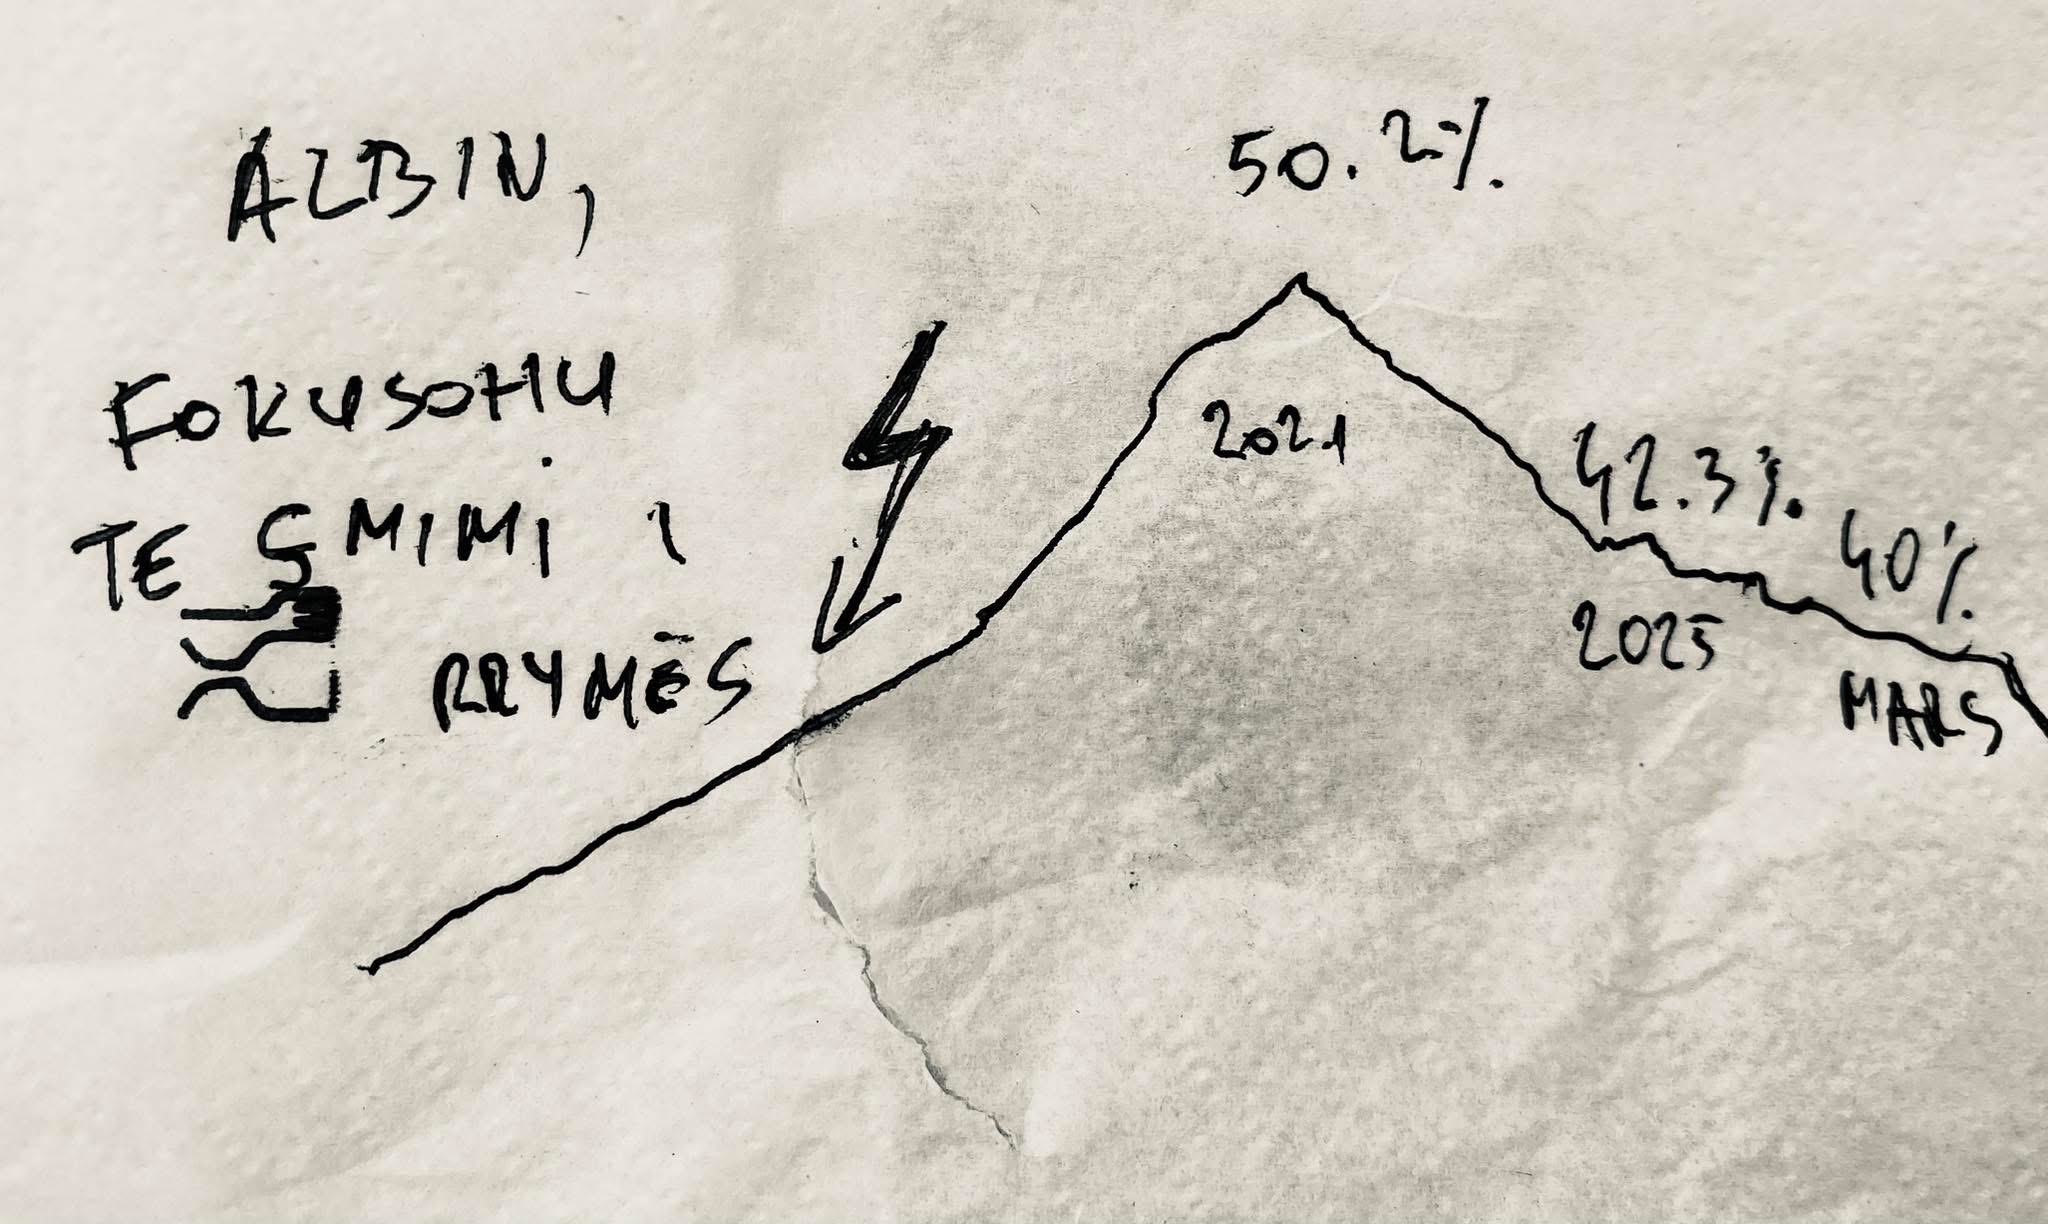 ALBIN,
FOKUSOHU
TE ÇMIMI I
RRYMËS
50.2%
2021
42.3%
2025
40%
MARS